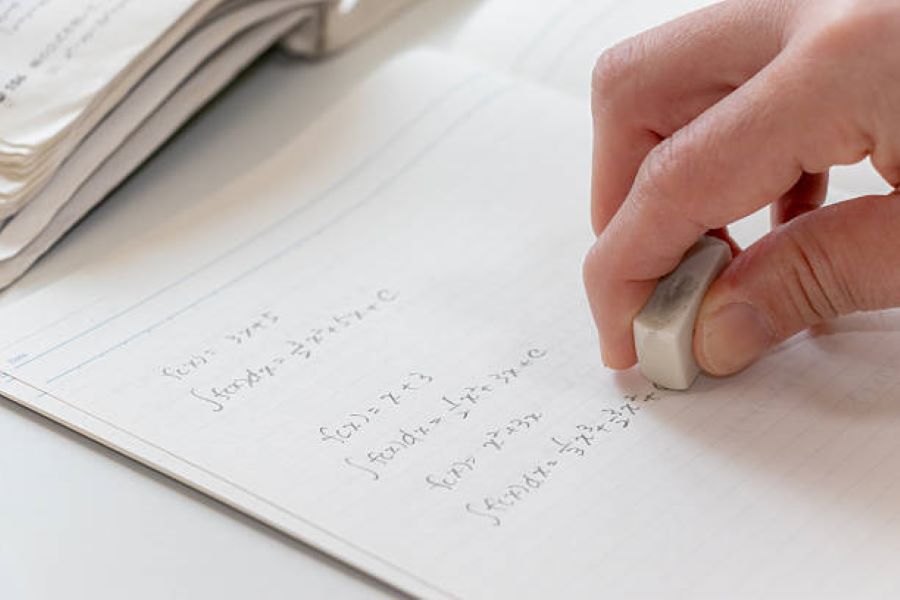 f(x) = 3x+5
∫f(x)dx = 3/2x²+5x+C
f(x) = x+3
∫f(x)dx = 1/2x²+3x+C
f(x) = x²+3x
∫f(x)dx = 1/3x³+3/2x²+